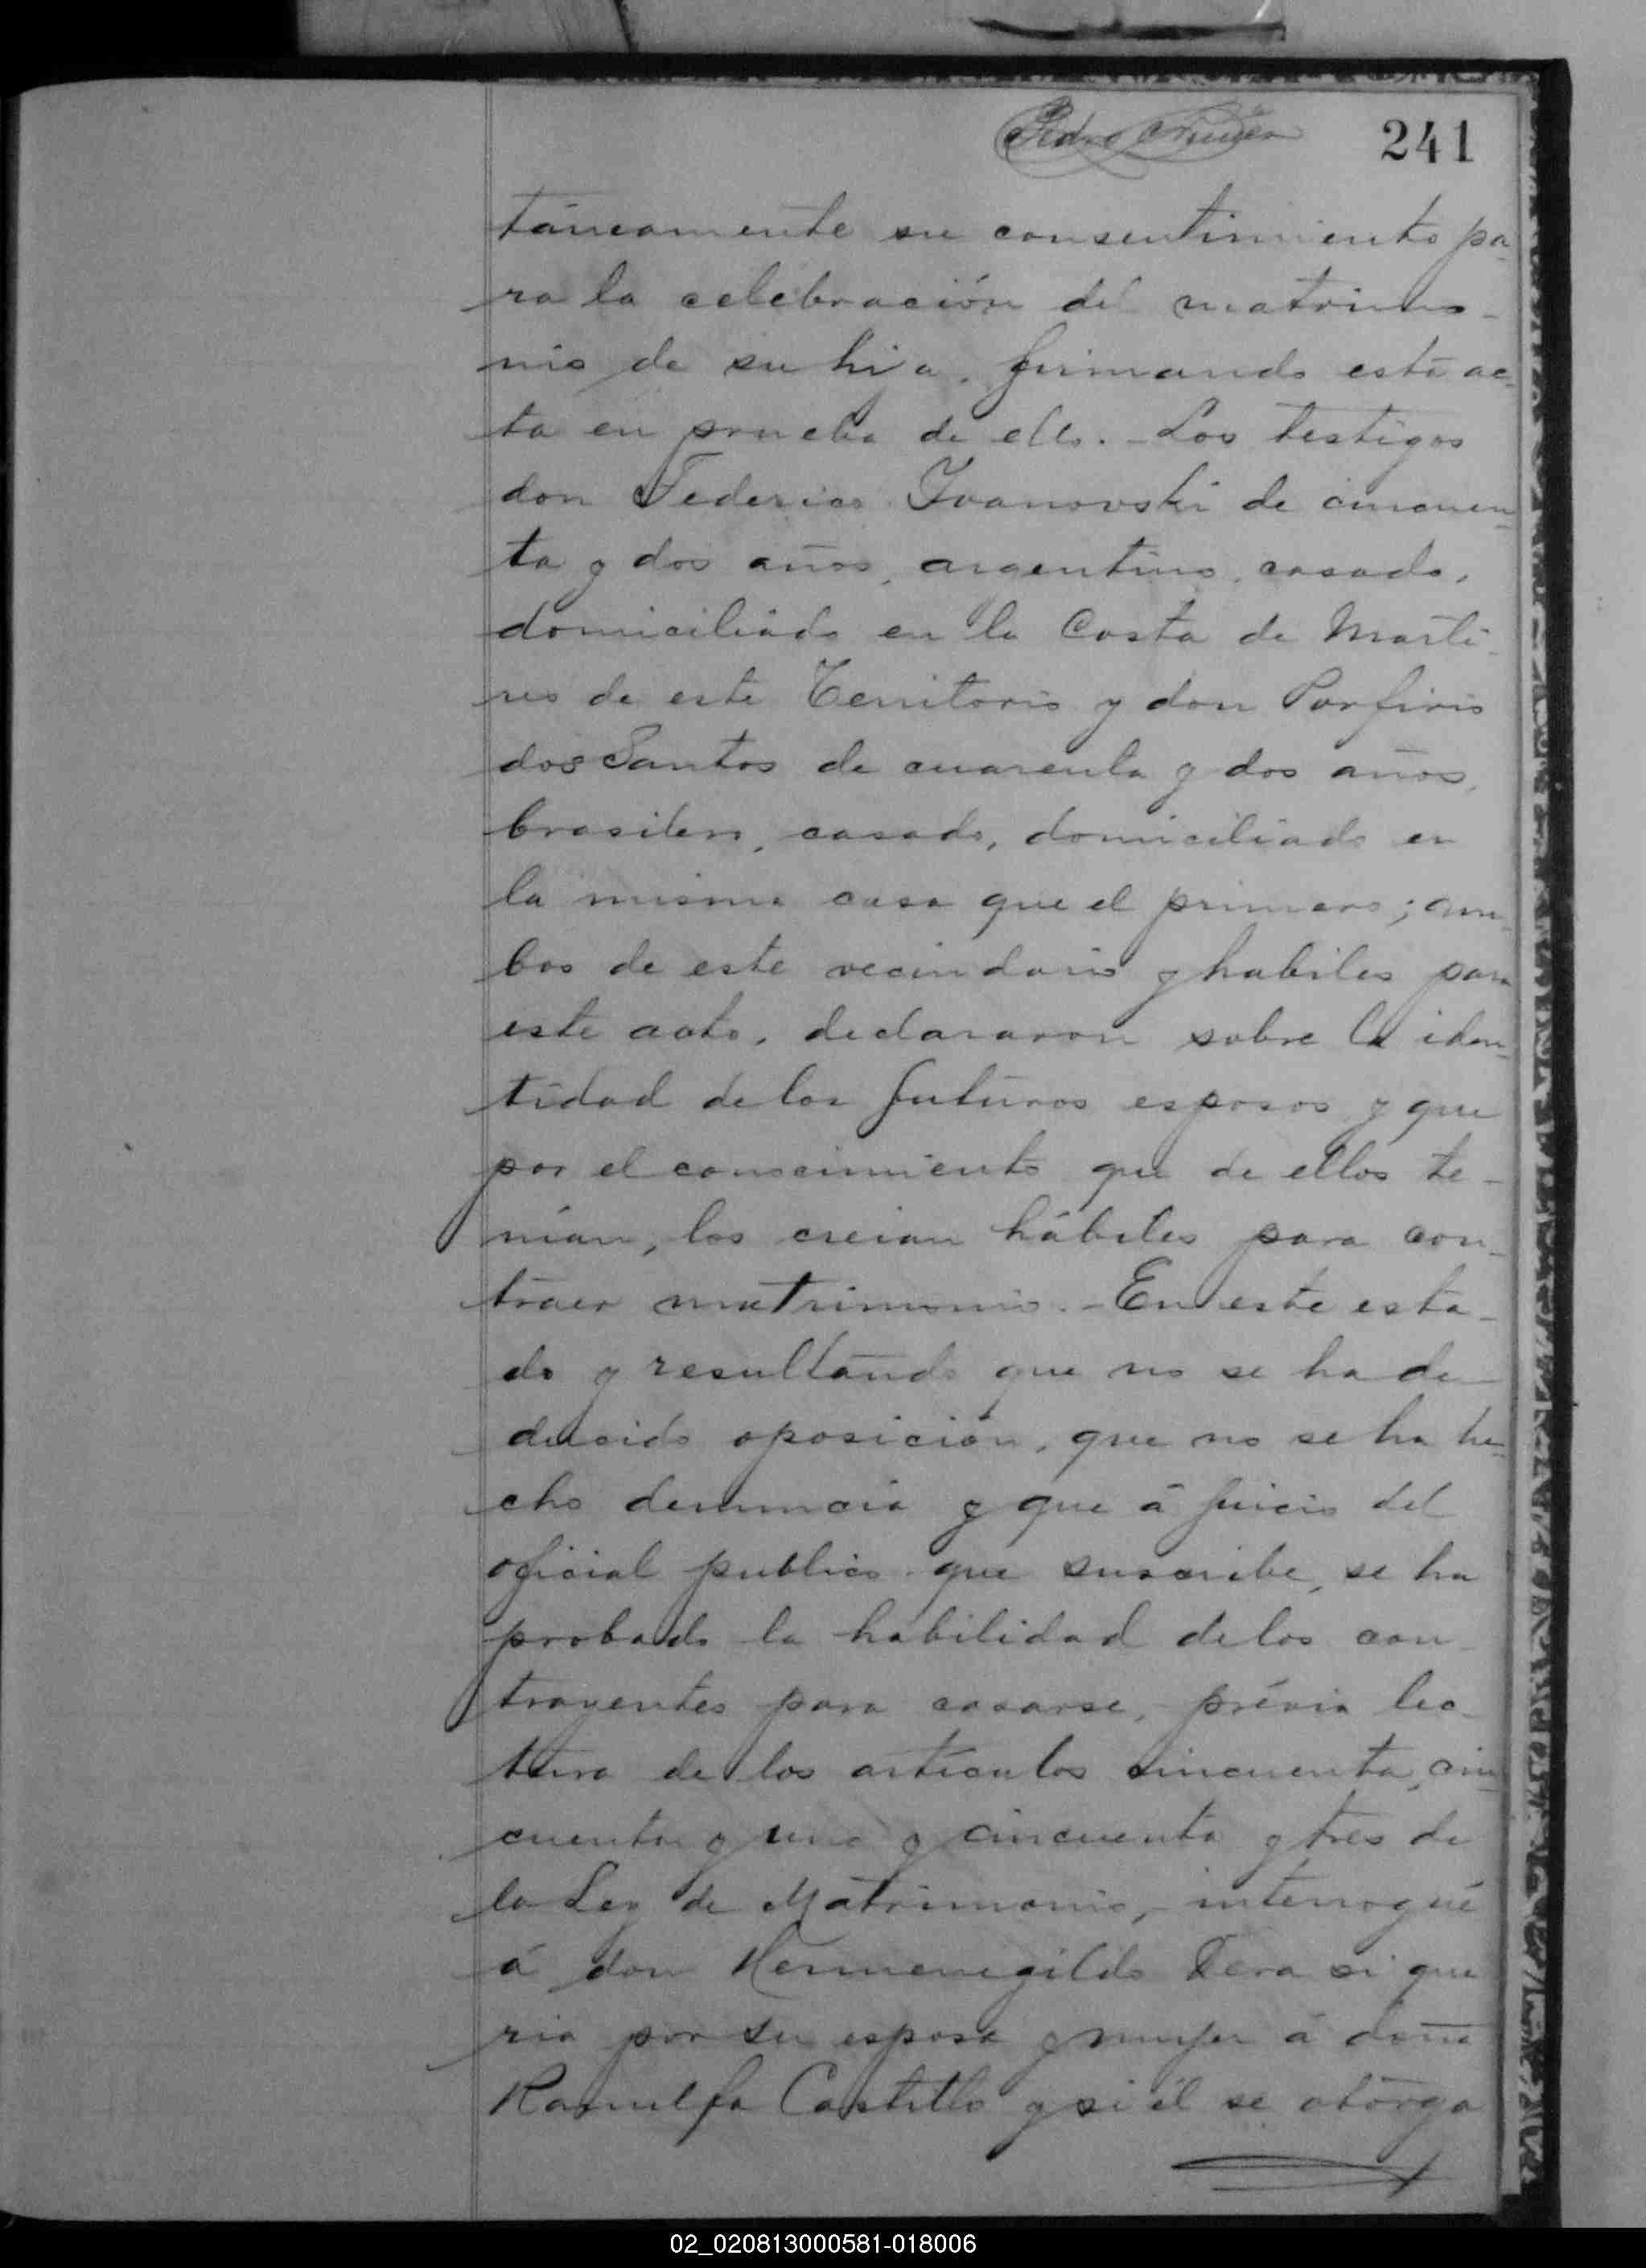 Pedro Nuñez
241
táneamente su consentimiento pa-
ra la celebración del matrimo-
nio de su hija, firmando esta ac-
ta en prueba de ello.- Los testigos
don Federico Ivanovski de cincuen-
ta y dos años, argentino, casado,
domiciliado en la Costa de Marti-
res de este Territorio y don Porfirio
dos Santos de cuarenta y dos años,
brasilero, casado, domiciliado en
la misma casa que el primero; am-
bos de este vecindario y habiles para
este acto, declararon sobre la iden-
tidad de los futuros esposos y que
por el conocimiento que de ellos te-
nían, los creian hábiles para con-
traer matrimonio.- En este esta-
do y resultando que no se ha de
ducido oposición, que no se ha he-
cho denuncia y que á juicio del
oficial publico que suscribe, se ha
probado la habilidad de los con-
trayentes para casarse, prévia lec-
tura de los artículos cincuenta, cin-
cuenta y uno y cincuenta y tres de
la Ley de Matrimonio, interrogué
á don Hermenegildo Vera si que
ria por su esposa y mujer á doña
Ranulfa Castillo y si él se otorga
02_020813000581-018006